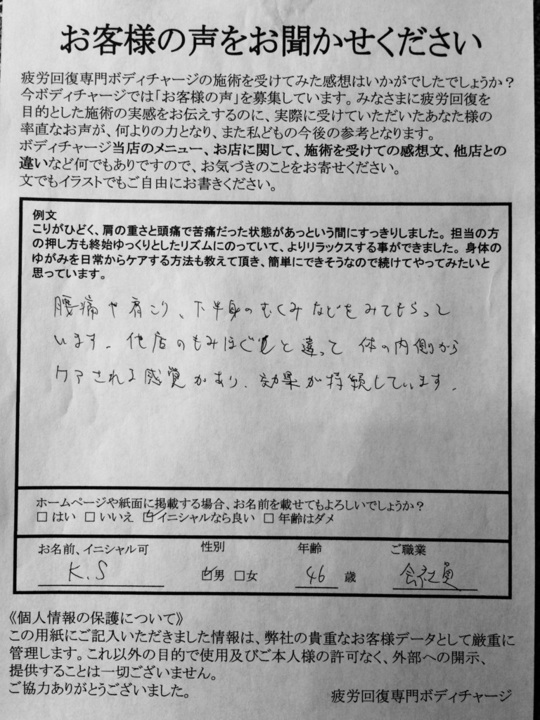 お客様の声をお聞かせください
疲労回復専門ボディチャージの施術を受けてみた感想はいかがでしたでしょうか？
今ボディチャージでは「お客様の声」を募集しています。みなさまに疲労回復を
目的とした施術の実感をお伝えするのに、実際に受けていただいたあなた様の
率直なお声が、何よりの力となり、また私どもの今後の参考となります。
ボディチャージ当店のメニュー、お店に関して、施術を受けての感想文、他店との
違いなど何でもありですので、お気づきのことをお寄せください。
文でもイラストでもご自由にお書きください。
例文
こりがひどく、肩の重さと頭痛で苦痛だった状態があっという間にすっきりしました。担当の方
の押し方も終始ゆっくりとしたリズムにのっていて、よりリラックスする事ができました。身体の
ゆがみを日常からケアする方法も教えて頂き、簡単にできそうなので続けてやってみたいと
思っています。
腰痛や肩こり、下半身のむくみなどをみてもらって
います。他店のもみほぐしと違って 体の内側から
ケアされる感覚があり、効果が持続しています。
ホームページや紙面に掲載する場合、お名前を載せてもよろしいでしょうか？
□ はい □ いいえ ☑イニシャルなら良い □ 年齢はダメ
お名前、イニシャル可 性別 年齢 ご職業
K.S ☑男 □女 46 歳 会社員
《個人情報の保護について》
この用紙にご記入いただきました情報は、弊社の貴重なお客様データとして厳重に
管理します。これ以外の目的で使用及びご本人様の許可なく、外部への開示、
提供することは一切ございません。
ご協力ありがとうございました。
疲労回復専門ボディチャージ